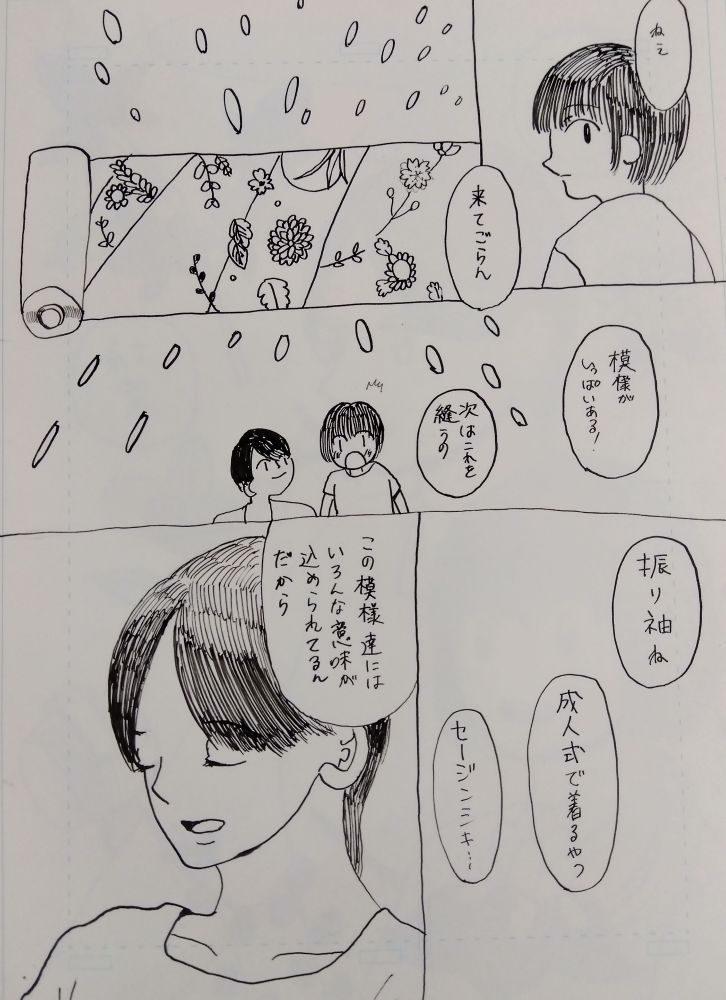 ねえ
来てごらん
模様が
いっぱいある!
次はこれを
縫うの
振り袖ね
成人式で着るやつ
セージンシキ…
この模様達には
いろんな意味が
込められてるん
だから